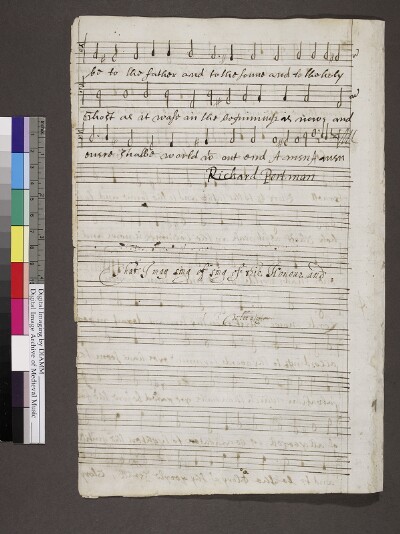 be to the father and to the sonne and to the holy
Ghost as it wase in the beginninge as now, and
evere shalbe world w out end Amen
Richard Portman
That I may sing of
Honour and
Digital Imaging by DIAMM
Digital Image Archive of Medieval Music